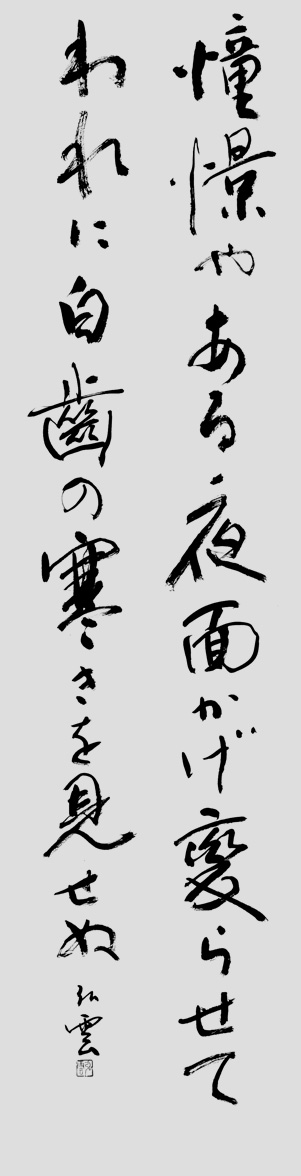 憧憬やある夜面かげ変らせて
われに白歯の寒きを見せぬ
弘雲